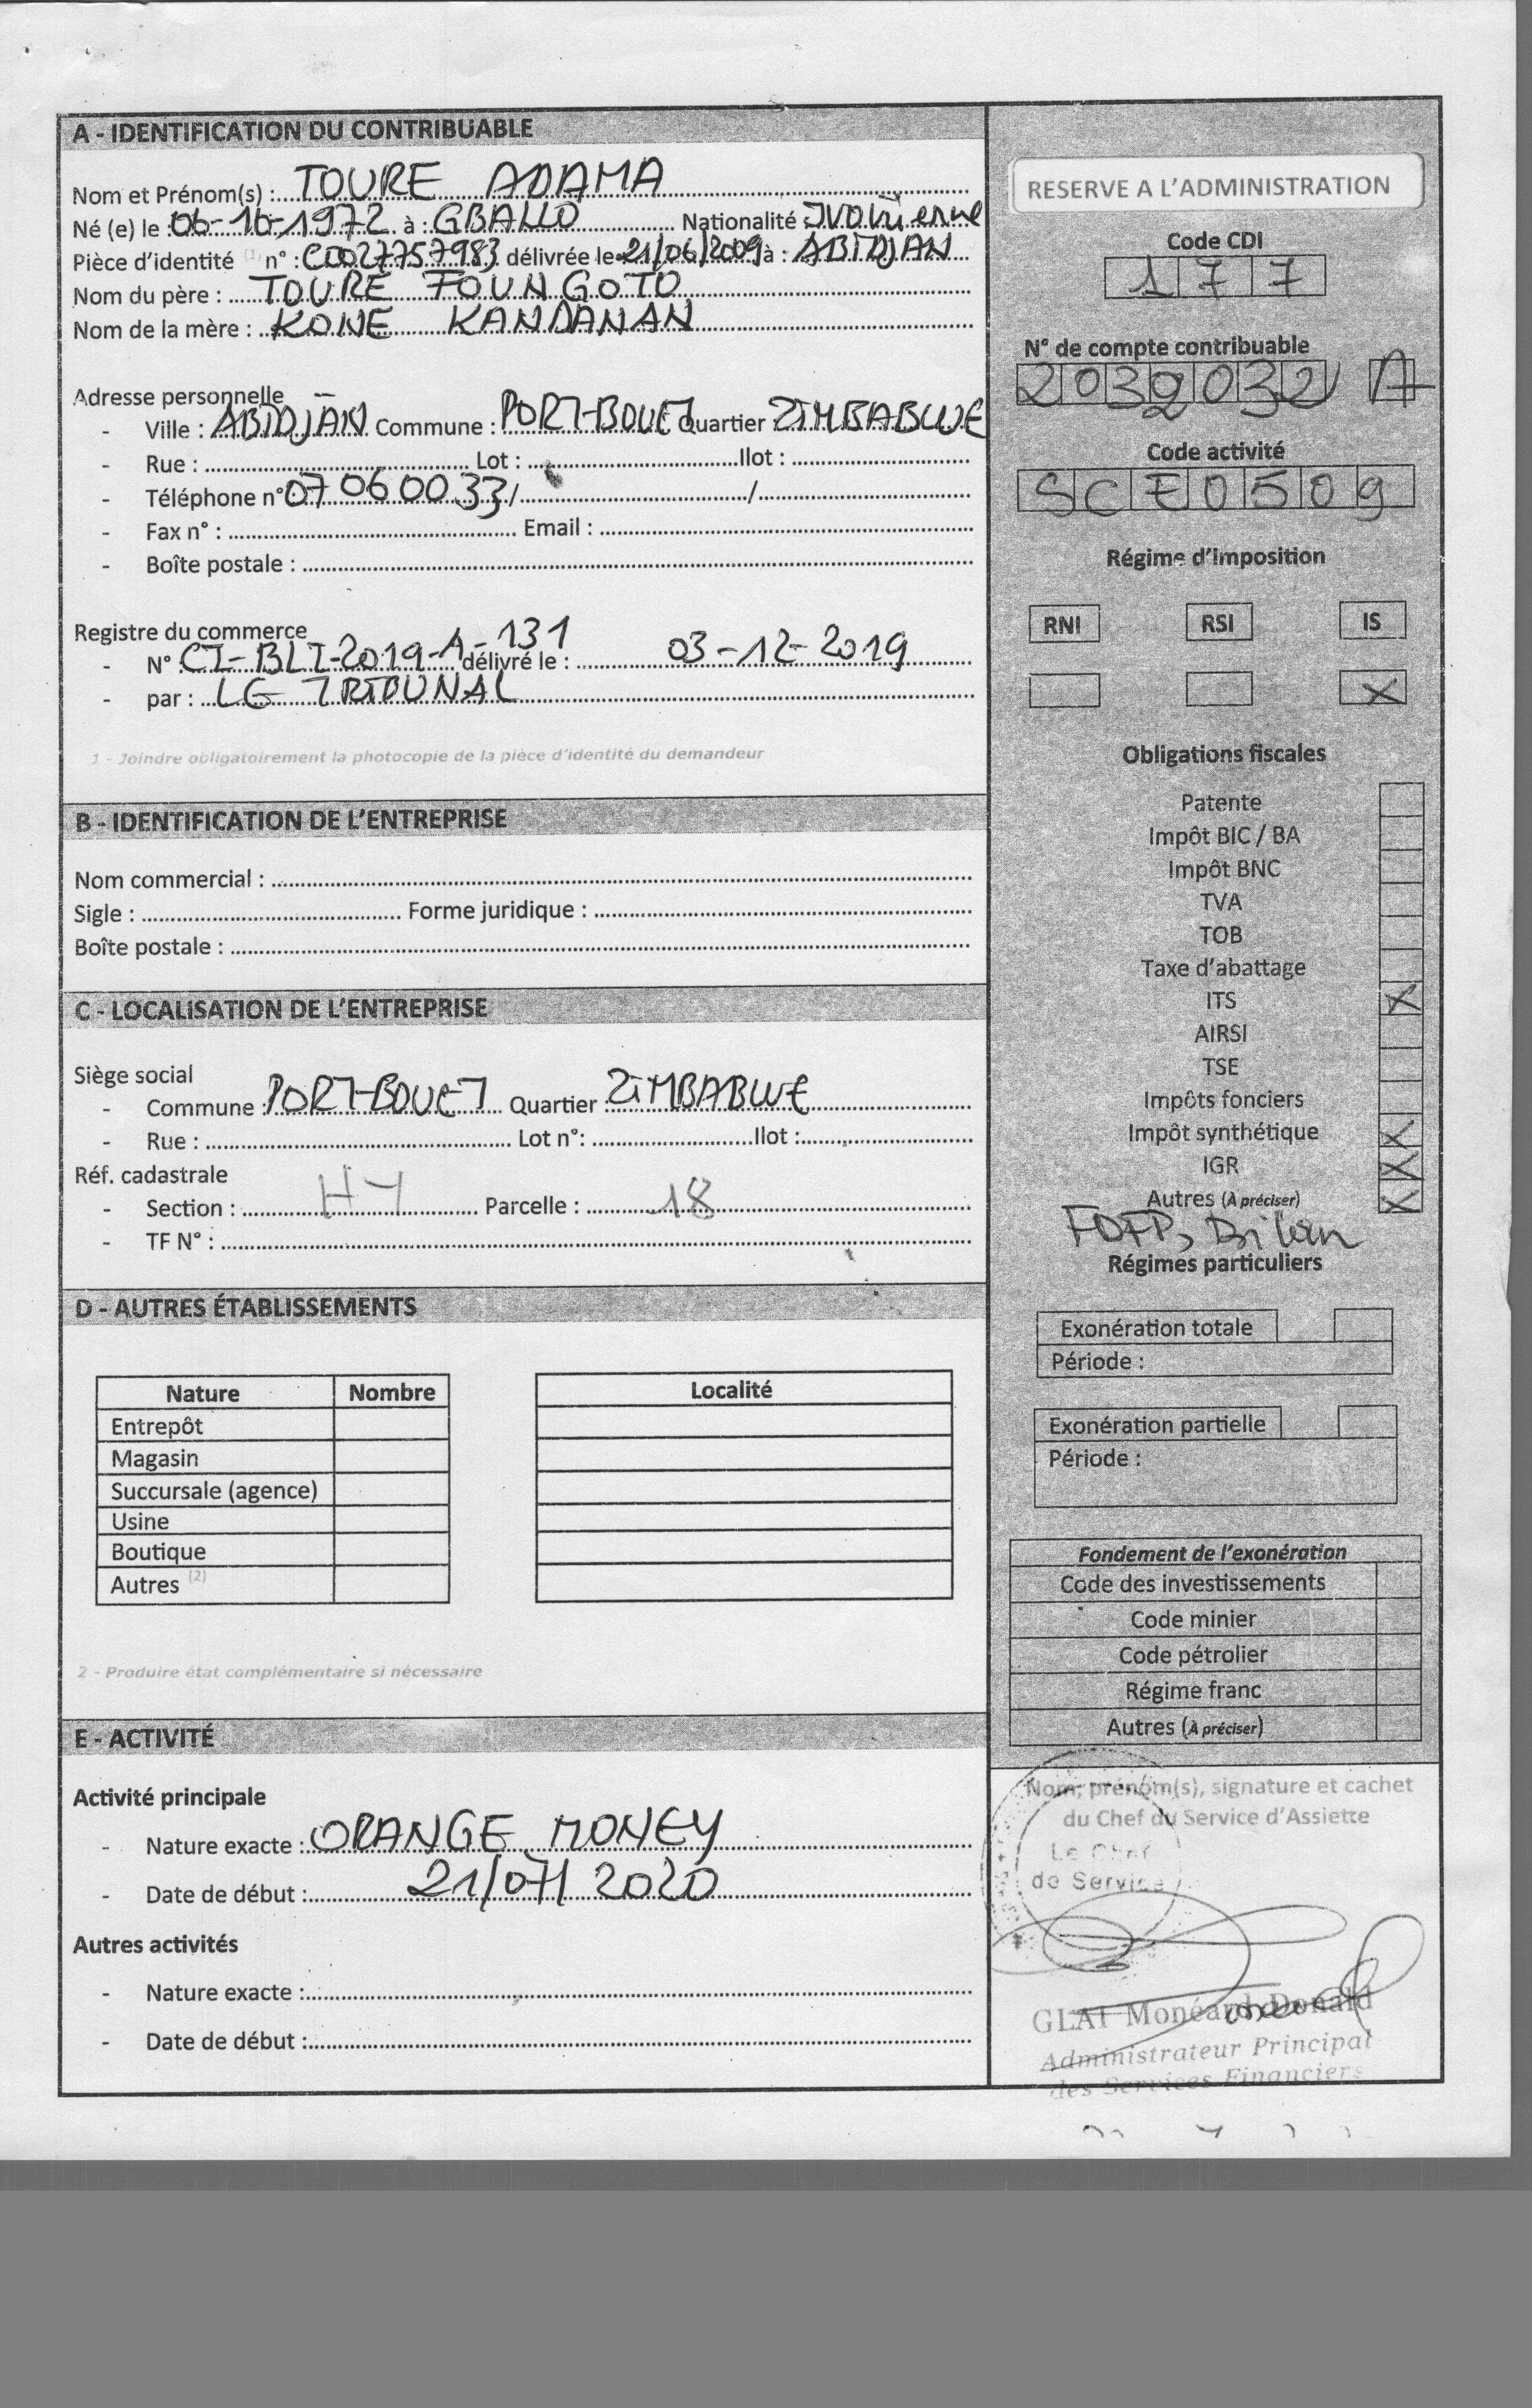 A - IDENTIFICATION DU CONTRIBUABLE
Nom et Prénom(s) : TOURE ADAMA
Né (e) le : 06-10-1972 à : GBALLO Nationalité Ivoirienne
Pièce d'identité (1) n° : C0027757983 délivrée le 21/06/2009 à : ABIDJAN
Nom du père : TOURE FOUNGOTO
Nom de la mère : KONE KANDANAN
Adresse personnelle
- Ville : ABIDJAN Commune : PORT-BOUET Quartier ZIMBABWE
- Rue : Lot : Ilot :
- Téléphone n° 07 06 00 33 / /
- Fax n° : Email :
- Boîte postale :
Registre du commerce
- N° CI-BLI-2019-A-131 délivré le : 03-12-2019
- par : LE TRIBUNAL
1 - Joindre obligatoirement la photocopie de la pièce d'identité du demandeur
B - IDENTIFICATION DE L'ENTREPRISE
Nom commercial :
Sigle : Forme juridique :
Boîte postale :
C - LOCALISATION DE L'ENTREPRISE
Siège social
- Commune : PORT-BOUET Quartier : ZIMBABWE
- Rue : Lot n°: Ilot :
Réf. cadastrale
- Section : HY Parcelle : 18
- TF N° :
D - AUTRES ÉTABLISSEMENTS
Nature Nombre Localité
Entrepôt
Magasin
Succursale (agence)
Usine
Boutique
Autres (2)
2 - Produire état complémentaire si nécessaire
E - ACTIVITÉ
Activité principale
- Nature exacte : ORANGE MONEY
- Date de début : 21/07/2020
Autres activités
- Nature exacte :
- Date de début :
RESERVE A L'ADMINISTRATION
Code CDI
1 7 7
N° de compte contribuable
2 0 3 9 0 3 2 A
Code activité
S C E 0 5 0 9
Régime d'imposition
RNI RSI IS
X
Obligations fiscales
Patente
Impôt BIC / BA
Impôt BNC
TVA
TOB
Taxe d'abattage
ITS X
AIRSI
TSE
Impôts fonciers
Impôt synthétique X
IGR X
Autres (À préciser) X
FDFP, Bilan
Régimes particuliers
Exonération totale
Période :
Exonération partielle
Période :
Fondement de l'exonération
Code des investissements
Code minier
Code pétrolier
Régime franc
Autres (À préciser)
Nom, prénom(s), signature et cachet
du Chef du Service d'Assiette
Le Chef
de Service
GLAI Monéard Donald
Administrateur Principal
des Services Financiers